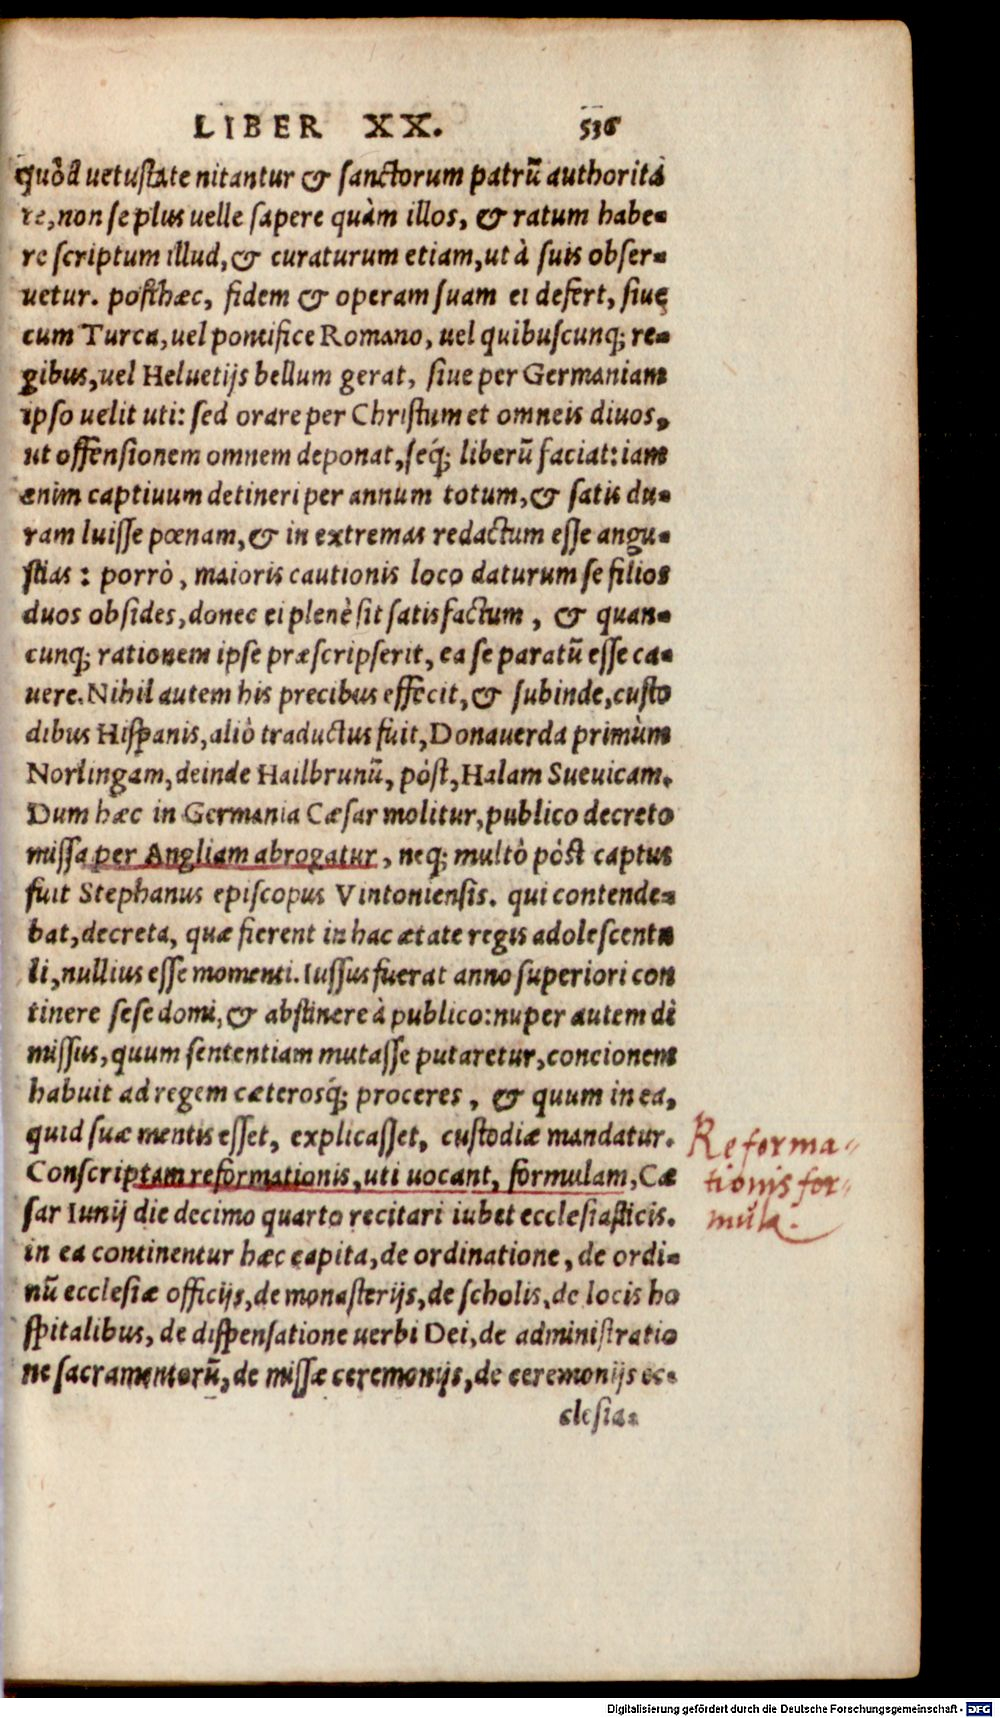 LIBER XX. 536
quòd uetustate nitantur & sanctorum patrũ authorita
te, non se plus uelle sapere quàm illos, & ratum habe-
re scriptum illud, & curaturum etiam, ut à suis obser-
uetur. posthæc, fidem & operam suam ei defert, siue
cum Turca, uel pontifice Romano, uel quibuscunq; re-
gibus, uel Heluetijs bellum gerat, siue per Germaniam
ipso uelit uti: sed orare per Christum et omneis diuos,
ut offensionem omnem deponat, seq́; liberũ faciat: iam
enim captiuum detineri per annum totum, & satis du-
ram luisse pœnam, & in extremas redactum esse angu-
stias: porrò, maioris cautionis loco daturum se filios
duos obsides, donec ei plenè sit satisfactum, & quan-
cunq; rationem ipse præscripserit, ea se paratũ esse ca-
uere. Nihil autem his precibus effecit, & subinde, custo
dibus Hispanis, aliò traductus fuit, Donauerda primùm
Norlingam, deinde Hailbrunũ, pòst, Halam Sueuicam.
Dum hæc in Germania Cæsar molitur, publico decreto
missa per Angliam abrogatur, neq; multò pòst captus
fuit Stephanus episcopus Vintoniensis. qui contende-
bat, decreta, quæ fierent in hac ætate regis adolescentu
li, nullius esse momenti. Iussus fuerat anno superiori con
tinere sese domi, & abstinere à publico: nuper autem di
missus, quum sententiam mutasse putaretur, concionem
habuit ad regem cæterosq́; proceres, & quum in ea,
quid suæ mentis esset, explicasset, custodiæ mandatur.
Conscriptam reformationis, uti uocant, formulam, Cæ
sar Iunij die decimo quarto recitari iubet ecclesiasticis.
in ea continentur hæc capita, de ordinatione, de ordi-
nũ ecclesiæ officijs, de monasterijs, de scholis, de locis ho
spitalibus, de dispensatione uerbi Dei, de administratio
ne sacramentorũ, de missæ ceremonijs, de ceremonijs ec-
clesia-
Reforma-
tionis for-
mula.
Digitalisierung gefördert durch die Deutsche Forschungsgemeinschaft - DFG